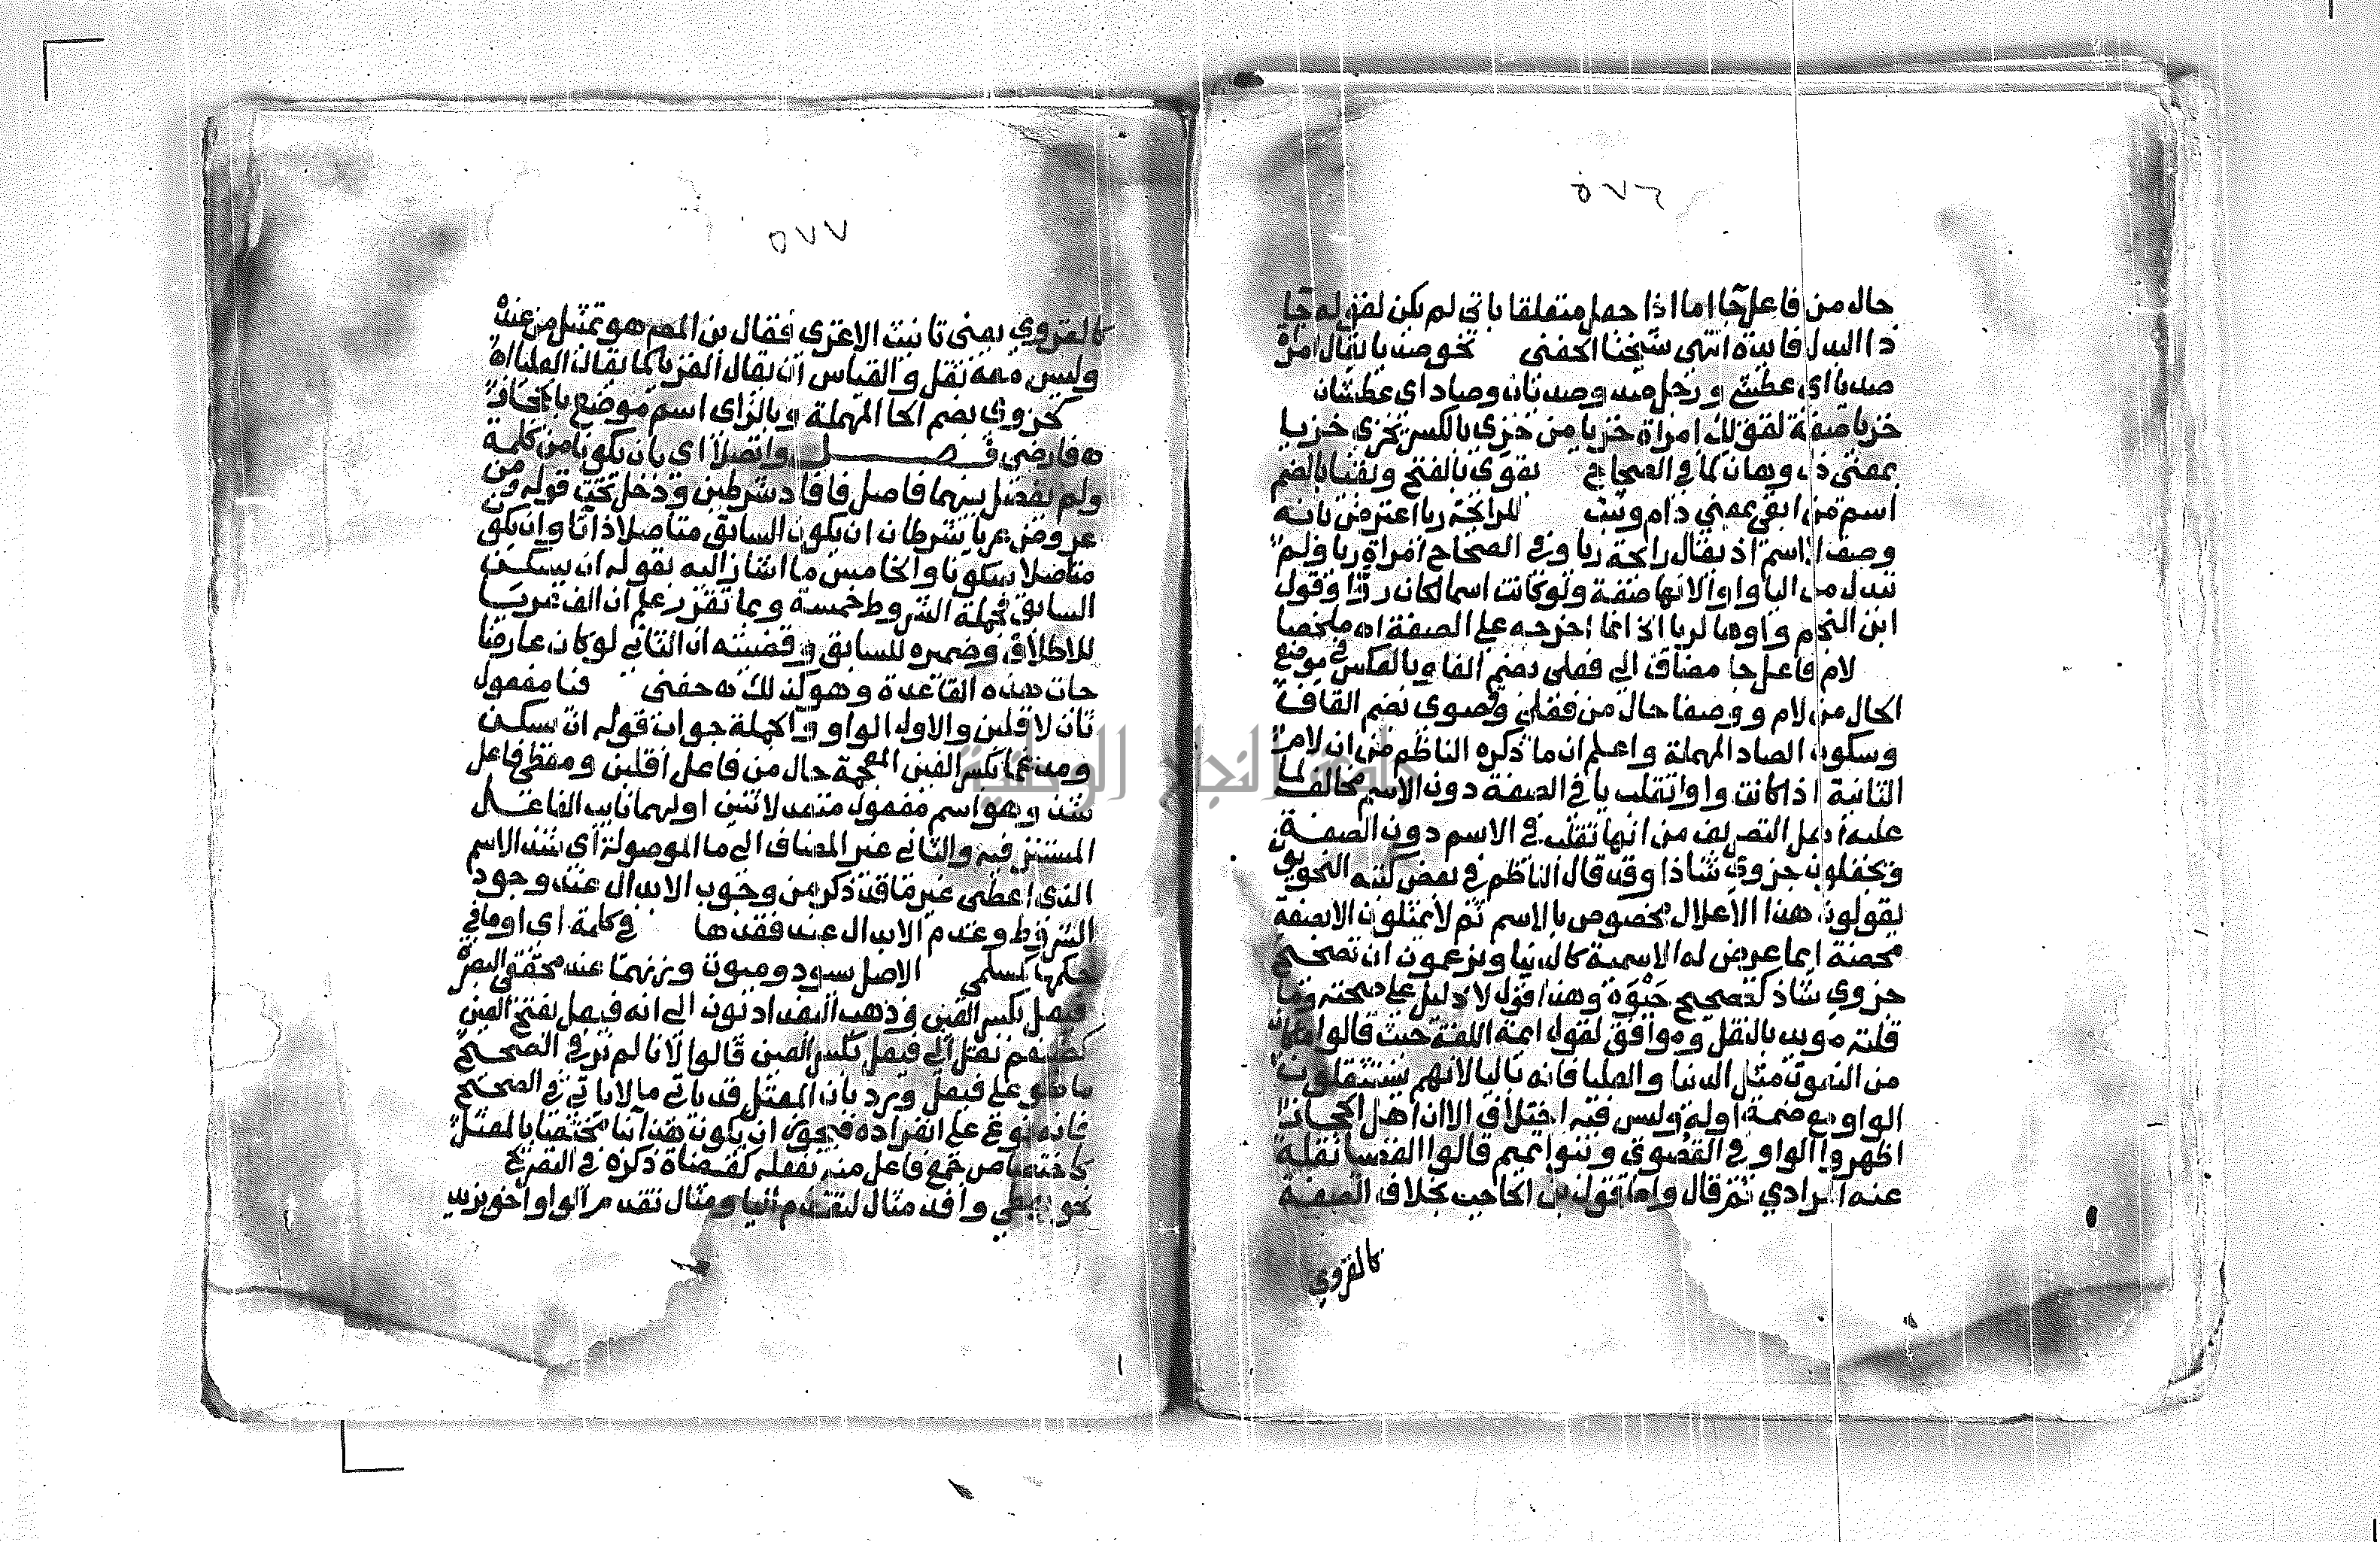 ٥٧٦
حال من فاعل جا اما اذا جعل متعلقا باتى لم يكن لقوله جا
ذا البدل فايدة انتهى شيخنا الحفنى نحو صديا يقال امراة
صديا اى عطشى ورجل صد وصديان وصاد اى عطشان
خزيا صفة لقولك امراة خزيا من خزي بالكسر يخزى خزيا
بمعنى ذل وهان كما في الصحاح تقوى بالفتح وبقيا بالضم
اسم من ابقى بمعنى دام وثبت للرائحة ريا اعترض بانه
وصف لا اسم اذ يقال رائحة ريا وفي الصحاح امراة ريا ولم
تبدل من اليا واوا لانها صفة ولو كانت اسما لكان روا وقول
ابن النجم واوها لريا الخ انما اخرجه على الصفة اه ملخصا
لام فاعل جا مضاف الى فعلى بضم الفا وبالعكس في موضع
الحال من لام ووصفا حال من فعلى وقصوى بضم القاف
وسكون الصاد المهملة واعلم ان ما ذكره الناظم من ان لام
الثانية اذا كانت واوا تقلب يا في الصفة دون الاسم مخالف لما
عليه اهل التصريف من انها تقلب في الاسم دون الصفة
ويجعلون حزوى شاذا وقد قال الناظم في بعض كتبه النحويون
يقولون هذا الاعلال مخصوص بالاسم ثم لا يمثلون الا بصفة
محضة او بما عرض له الاسمية كالدنيا ويزعمون ان تصحيح
حزوى شاذ كتصحيح حَيْوَة وهذا قول لا دليل على صحته وما
قلته مويد بالنقل وموافق لقول ايمة اللغة حيث قالوا ما كان
من النعوت مثل الدنيا والعليا فانه باليا لانهم يستثقلون
الواو مع ضمة اوله وليس فيه اختلاف الا ان اهل الحجاز
اظهروا الواو في القصوى وبنوا تميم قالوا القصيا نقله
عنه المرادي ثم قال واما قول بن الحاجب بخلاف الصفة
كالغزوي
٥٧٧
كالغزوي يعنى تانيث الاغزى فقال بن المصم هو تمثيل من عنده
وليس معه نقل والقياس ان يقال الغزيا كما يقال العليا اه
كحزوى بضم الحا المهملة وبالزاى اسم موضع بالحجاز
اه فارضى فصل واتصلا اى بان يكونا من كلمة
ولم يفصل بينهما فاصل فافاد شرطين ودخل تحت قوله ومن
عروض عريا شرطان ان يكون السابق متاصلا ذاتا وان يكون
متاصلا سكونا والخامس ما اشار اليه بقوله ان يسكن
السابق فجملة الشروط خمسة وبما تقرر علم ان الف عريا
للاطلاق وضميره للسابق وقضيته ان الثاني لو كان عارضا
جات هذه القاعدة وهو كذلك اه حفنى فيا مفعول
ثان لاقلبن والاول الواو والجملة جواب قوله ان يسكن
ومدغما بكسر الغين المعجمة حال من فاعل اقلبن ومعطى فاعل
شذ وهو اسم مفعول متعد لاثنين اولهما نايب الفاعل
المستتر فيه والثانى غير المضاف الى ما الموصولة اى شذ الاسم
الذى اعطى غير ما قد ذكر من وجوب الابدال عند وجود
الشروط وعدم الابدال عند فقدها في كلمة اى او ما في
حكمها كمسلمى الاصل سيود وميوت وزنهما عند محققى البصرة
فيعل بكسر العين وذهب البغداديون الى انه فيعل بفتح العين
كضيغم نقل الى فيعل بكسر العين قالوا لانا لم نر في الصحيح
ما هو على فيعل ويرد بان المعتل قد ياتى ما لا ياتى في الصحيح
فانه نوع على انفراده فيجوز ان يكون هذا بنا مختصا بالمعتل
كاختصاص جمع فاعل منه بفعلة كقضاة ذكره في التصريح
نحو يعطي وافد مثال لتقدم اليا ومثال تقدم الواو اخو يزيد
جامعة النجاح الوطنية